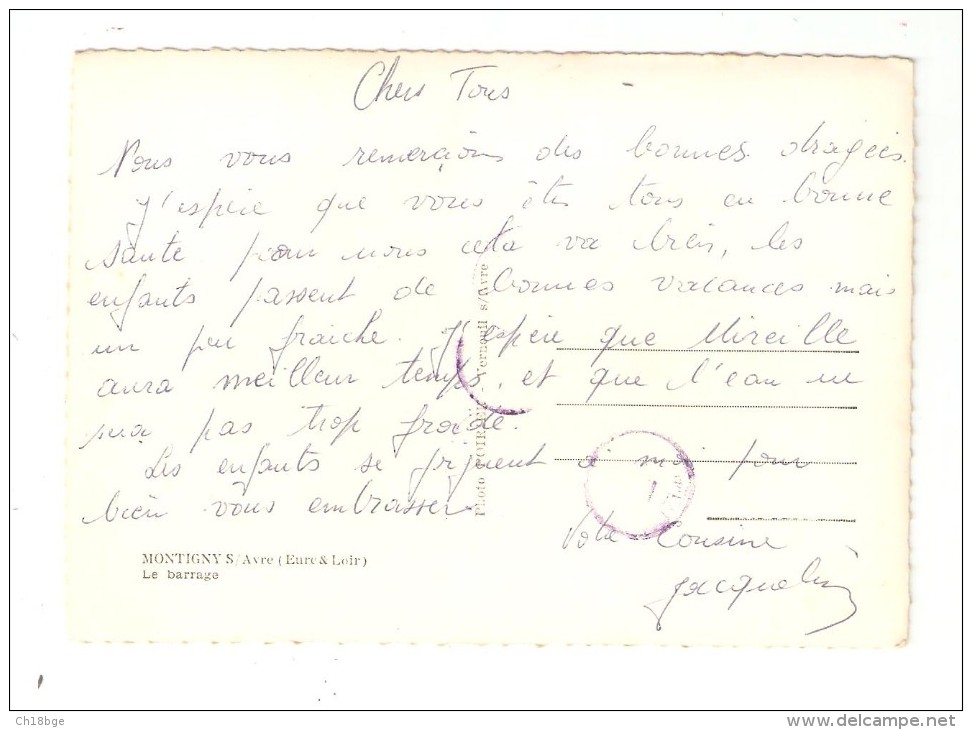 Chers Tous
Nous vous remerçions des bonnes dragées.
J'espère que vous êtes tous en bonne
santé pour nous cela va bien, les
enfants passent de bonnes vacances mais
un peu fraiche. J'espère que Mireille
aura meilleur temps, et que l'eau ne
sera pas trop froide.
Les enfants se joignent à moi pour
bien vous embrasser
Votre Cousine
Jacqueline
MONTIGNY S/Avre (Eure & Loir)
Le barrage
Photo Verneuil s/Avre
Ch18bge
www.delcampe.net